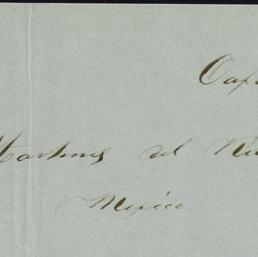 Cap
Martinez del Rio
Mexico